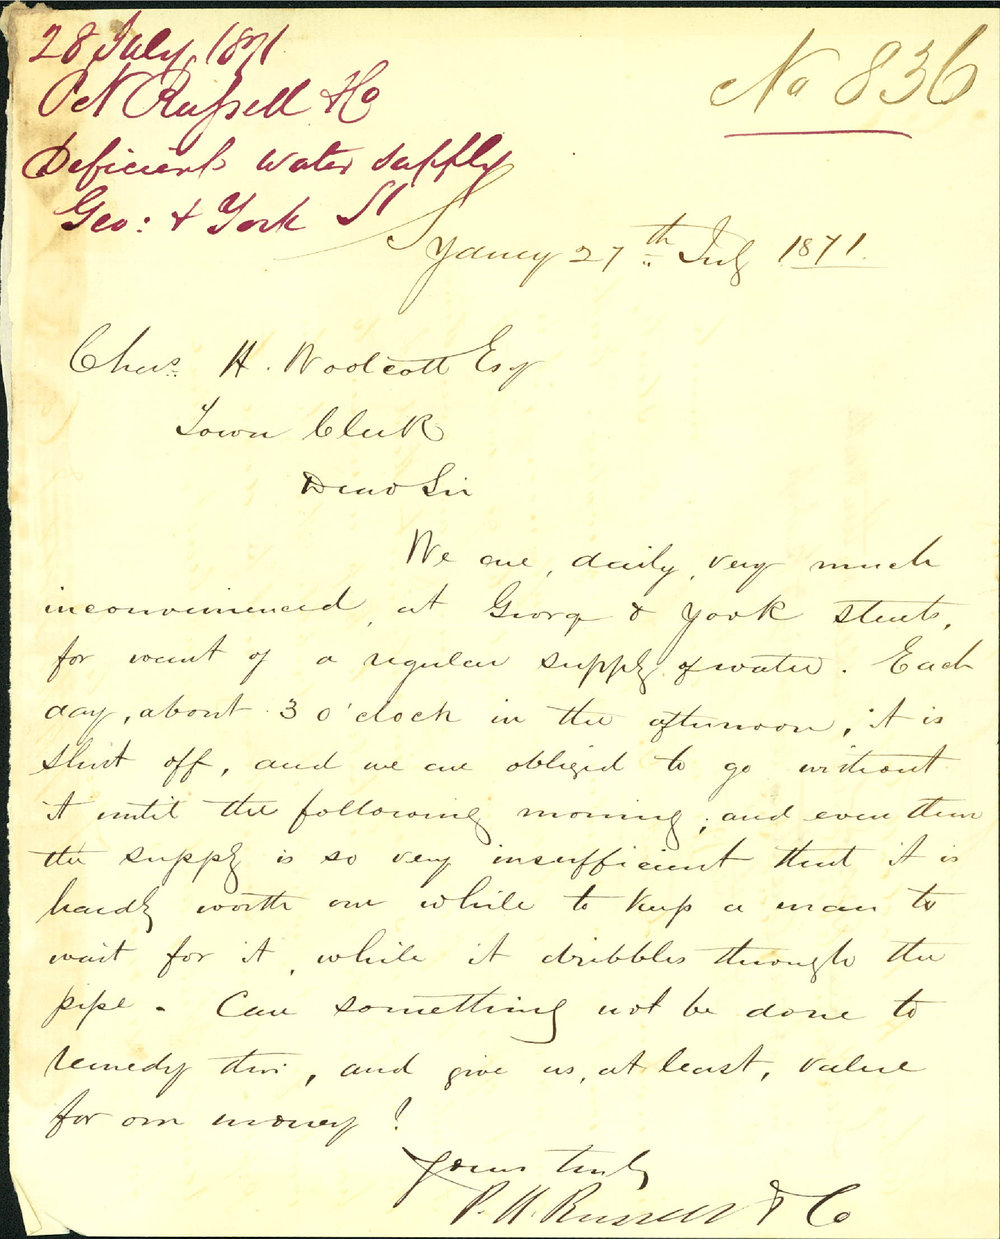 28 July, 1871
P N Russell & Co
Deficient water supply
Geo: & York St
No 836
Sydney 27th July 1871.
Chas. H. Woolcott Esq
Town Clerk
Dear Sir
We are, daily, very much
inconvenienced, at George & York streets,
for want of a regular supply of water. Each
day, about 3 o'clock in the afternoon, it is
shut off, and we are obliged to go without
it until the following morning; and even then
the supply is so very insufficient that it is
hardly worth our while to keep a man to
wait for it, while it dribbles through the
pipe. Can something not be done to
remedy this, and give us, at least, value
for our money?
Yours truly
P. N. Russell & Co